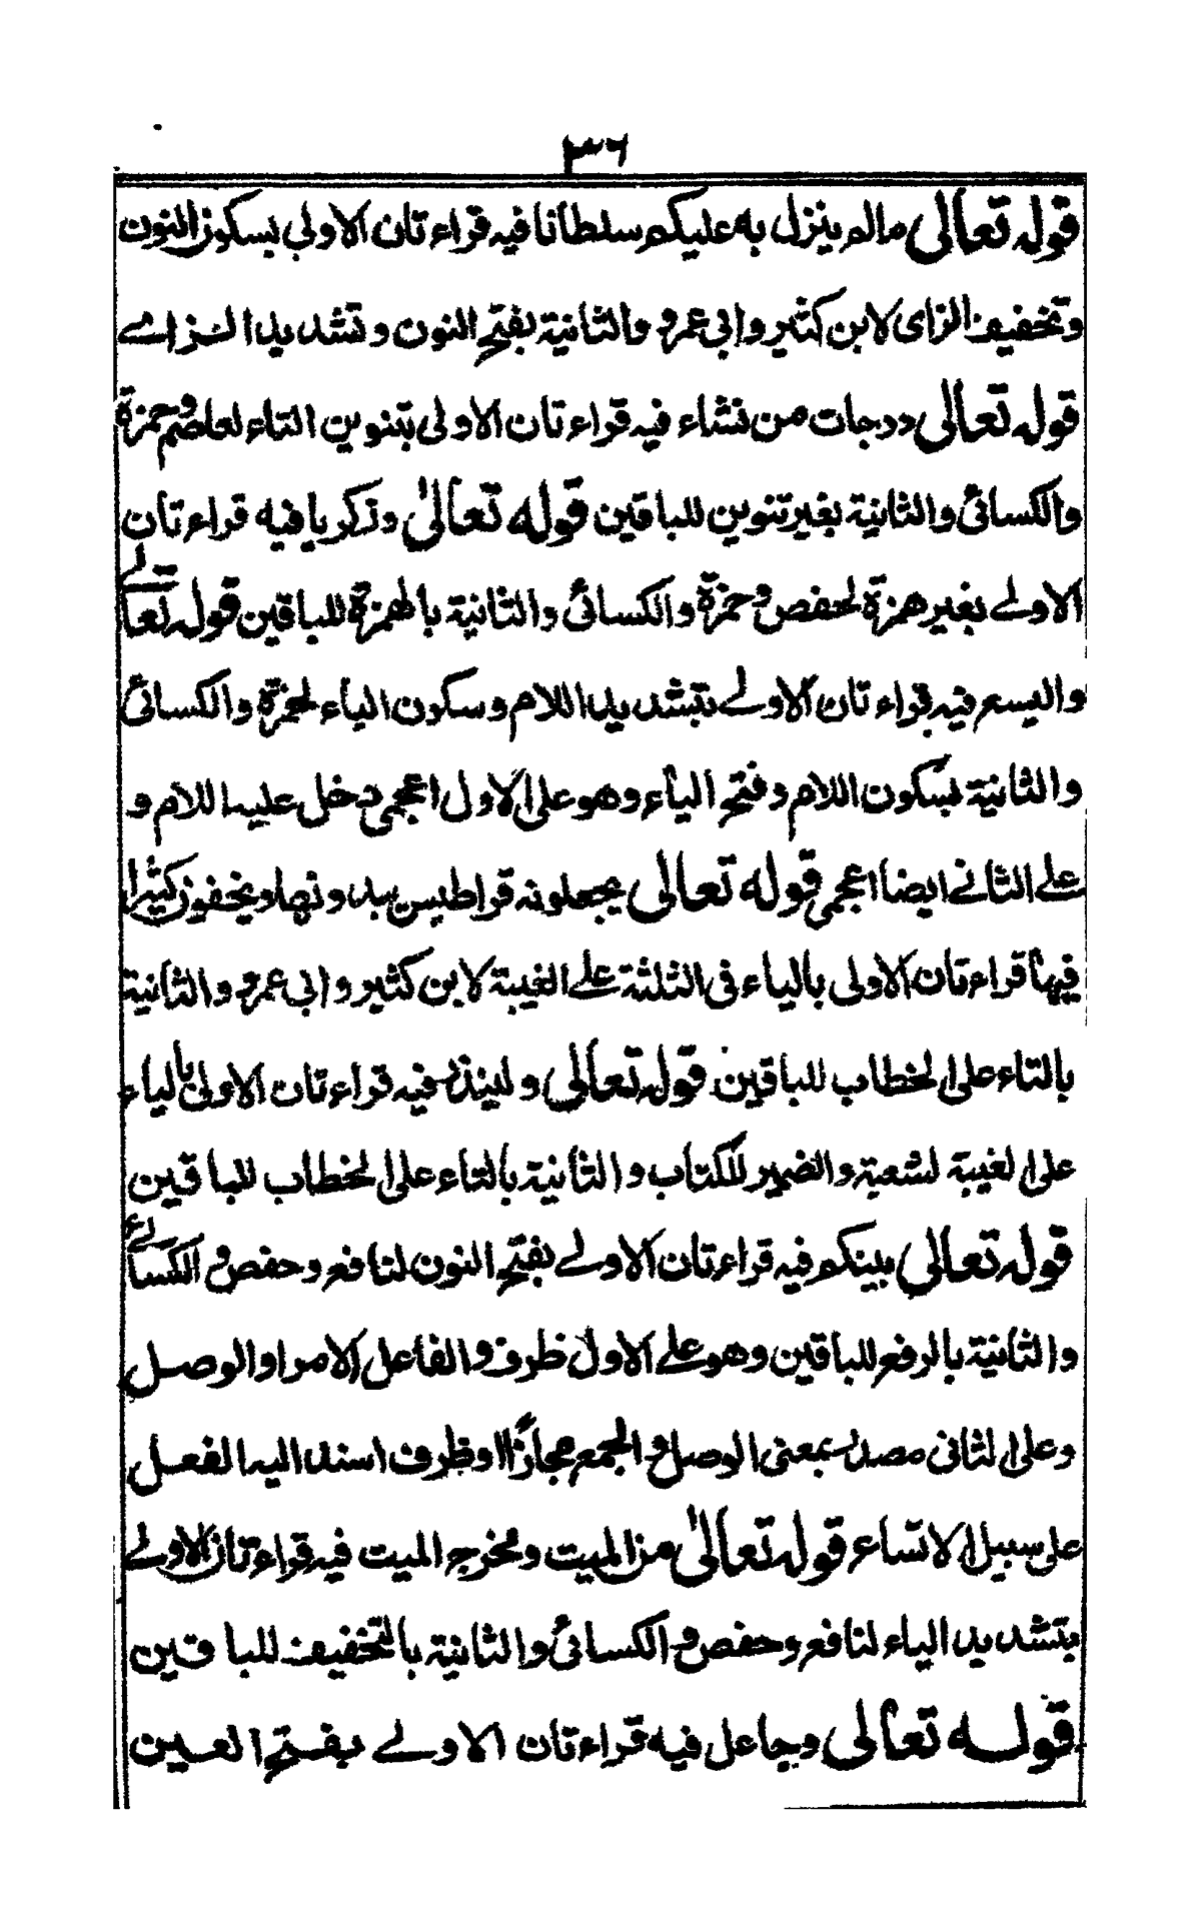 ٣٦
قوله تعالى مالم ينزل به عليكم سلطانا فيه قراءتان الاولى بسكون النون
وتخفيف الزاى لابن كثير وابى عمرو والثانية بفتح النون وتشديد الزاے
قوله تعالى درجات من نشاء فيه قراءتان الاولى بتنوين التاء لعاصم وحمزة
والكسائى والثانية بغير تنوين للباقين قوله تعالىٰ وذكريا فيه قراءتان
الاولے بغير همزة لحفص وحمزة والكسائى والثانية بالهمزة للباقين قوله تعالے
واليسع فيه قراءتان الاولے بتشديد اللام وسكون الياء لحمزة والكسائى
والثانية بسكون اللام وفتح الياء وهو على الاول اعجمى دخل عليه اللام و
علے الثانے ايضا اعجمى قوله تعالى يجعلونه قراطيس يبدونها ويخفون كثيرا
فيها قراءتان الاولى بالياء فى الثلثة علے الغيبة لابن كثير وابى عمرو والثانية
بالتاء على الخطاب للباقين قوله تعالى ولينذر فيه قراءتان الاولىٰ بالياء
على الغيبة لشعبة والضمير للكتاب والثانية بالتاء على الخطاب للباقين
قوله تعالى بينكم فيه قراءتان الاولے بفتح النون لنافع وحفص والكسائے
والثانية بالرفع للباقين وهو علے الاول ظرف والفاعل الامر او الوصل
وعلى الثانى مصدر بمعنى الوصل والجمع مجازًا او ظرف اسند اليه الفعل
على سبيل الاتساء قوله تعالىٰ من الميت ومخرج الميت فيه قراءتان الاولے
بتشديد الياء لنافع وحفص والكسائى والثانية بالتخفيف للباقين
قوله تعالى وجاعل فيه قراءتان الاولے بفتح العين